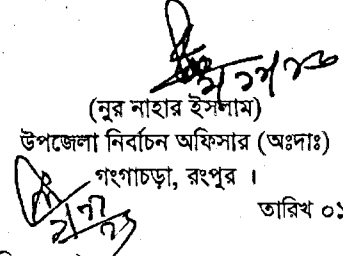 (নুর নাহার ইসলাম)
উপজেলা নির্বাচন অফিসার (অঃদাঃ)
গংগাচড়া, রংপুর ।
তারিখ ০১